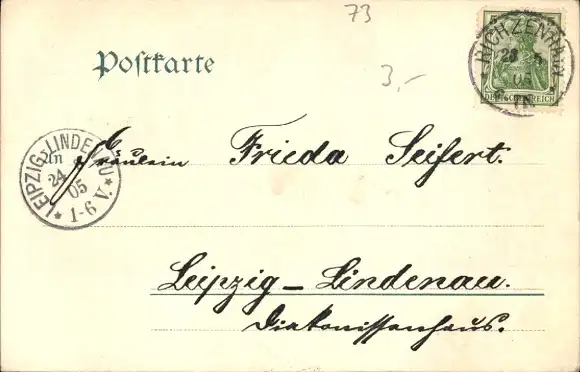 73
3,-
Postkarte
5 5
DEUTSCHES REICH
23
05
LEIPZIG-LINDENAU
24
05
1-6 V.
Fräulein Frieda Seifert.
Leipzig-Lindenau.
Diakonissenhaus.